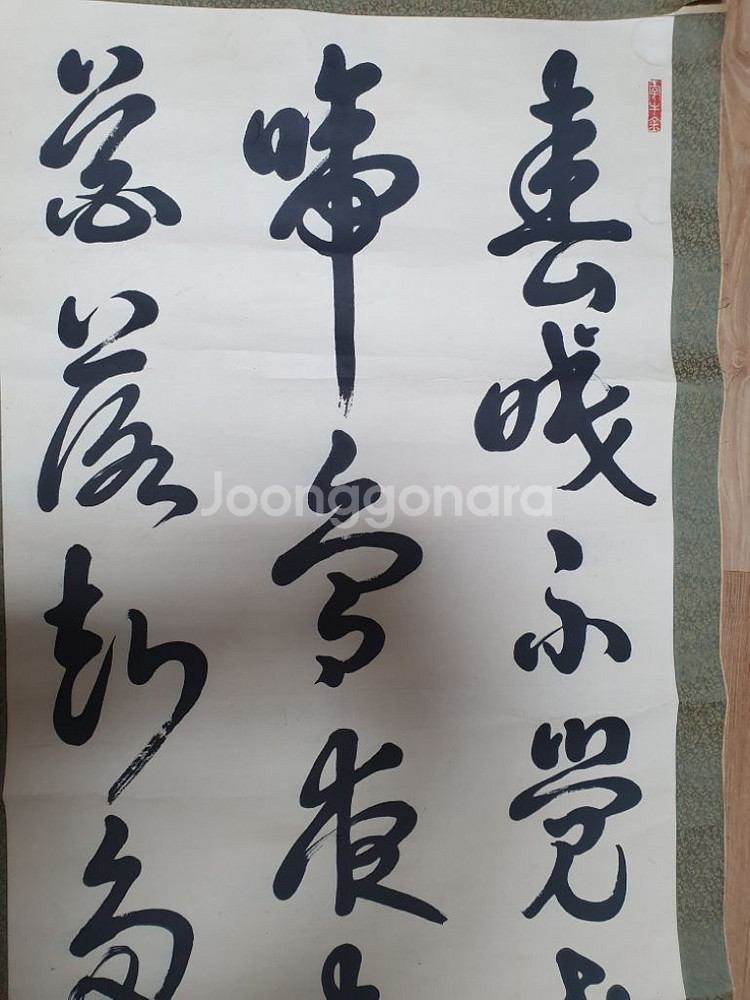 春眠不覺
啼鳥夜
花落知多
Joonggonara